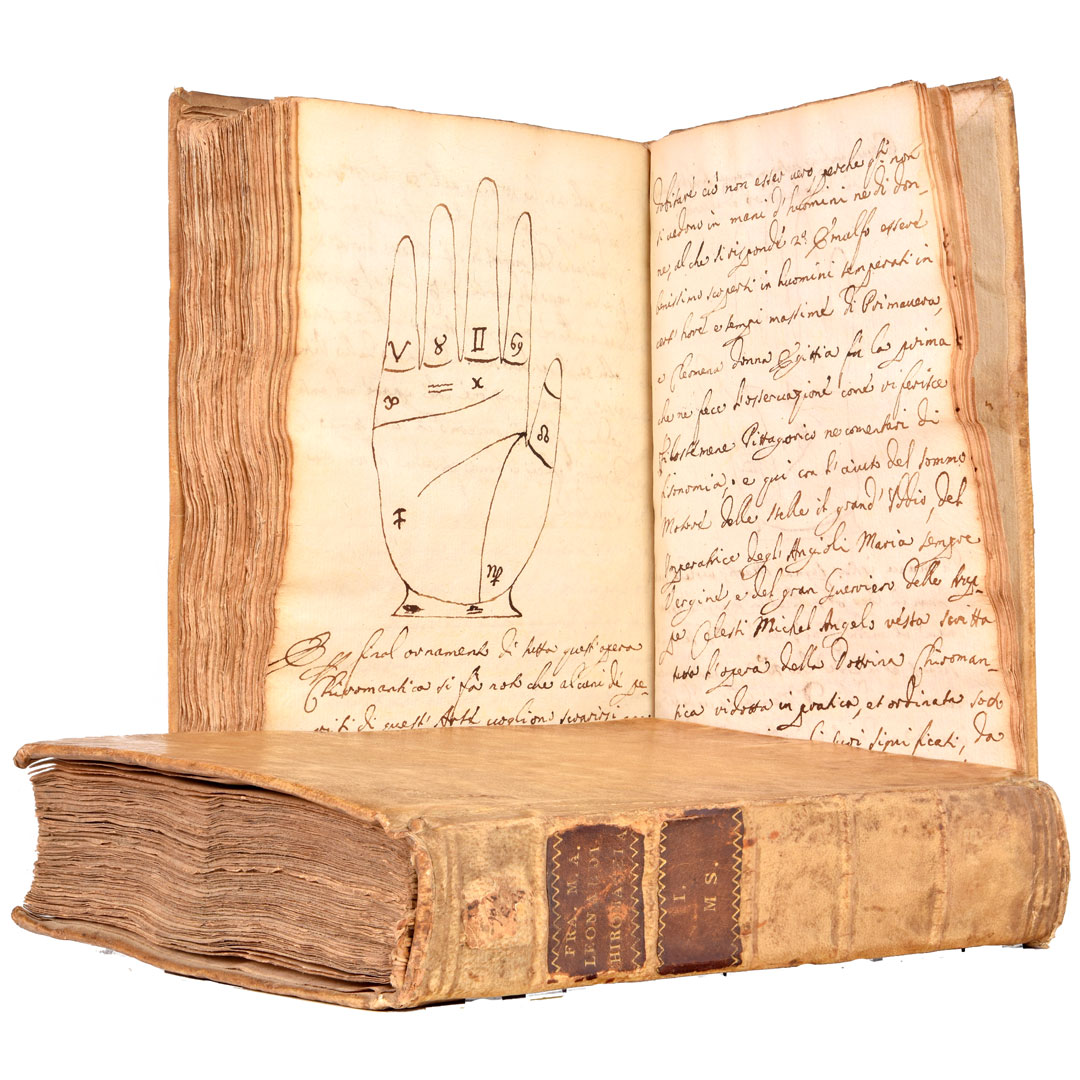 ♈ ♉ ♊ ♋
♒ ♓
♌
♍
final ornamento di tutta quest'opera
Chiromantica si fà noto che alcuni de pe-
riti di quest' Arte vogliono
ciò non esser vero, perche gli non
si vedono in mani d'huomini ne di don-
ne, al che si risponde
benissimo scoperti in huomini temperati in
cert' hore e tempi massime di Primavera,
e donna Egittia fu la prima
che ne fece l'osservazione come riferisce
Pittagorico ne comentari di
fisonomia, e qui con l'aiuto del sommo
Motore delle stelle il grand' Iddio, del
Imperatrice degl'Angioli Maria sempre
Vergine, e del gran Guerriero delle
Celesti Michel Angelo resta scritta
tutta l'opera della Dottrina Chiroman-
tica ridotta in pratica, et ordinata sotto
suoi significati, da
FRA. M. A.
LEONARDI
HIROMANTIA
I.
MS.